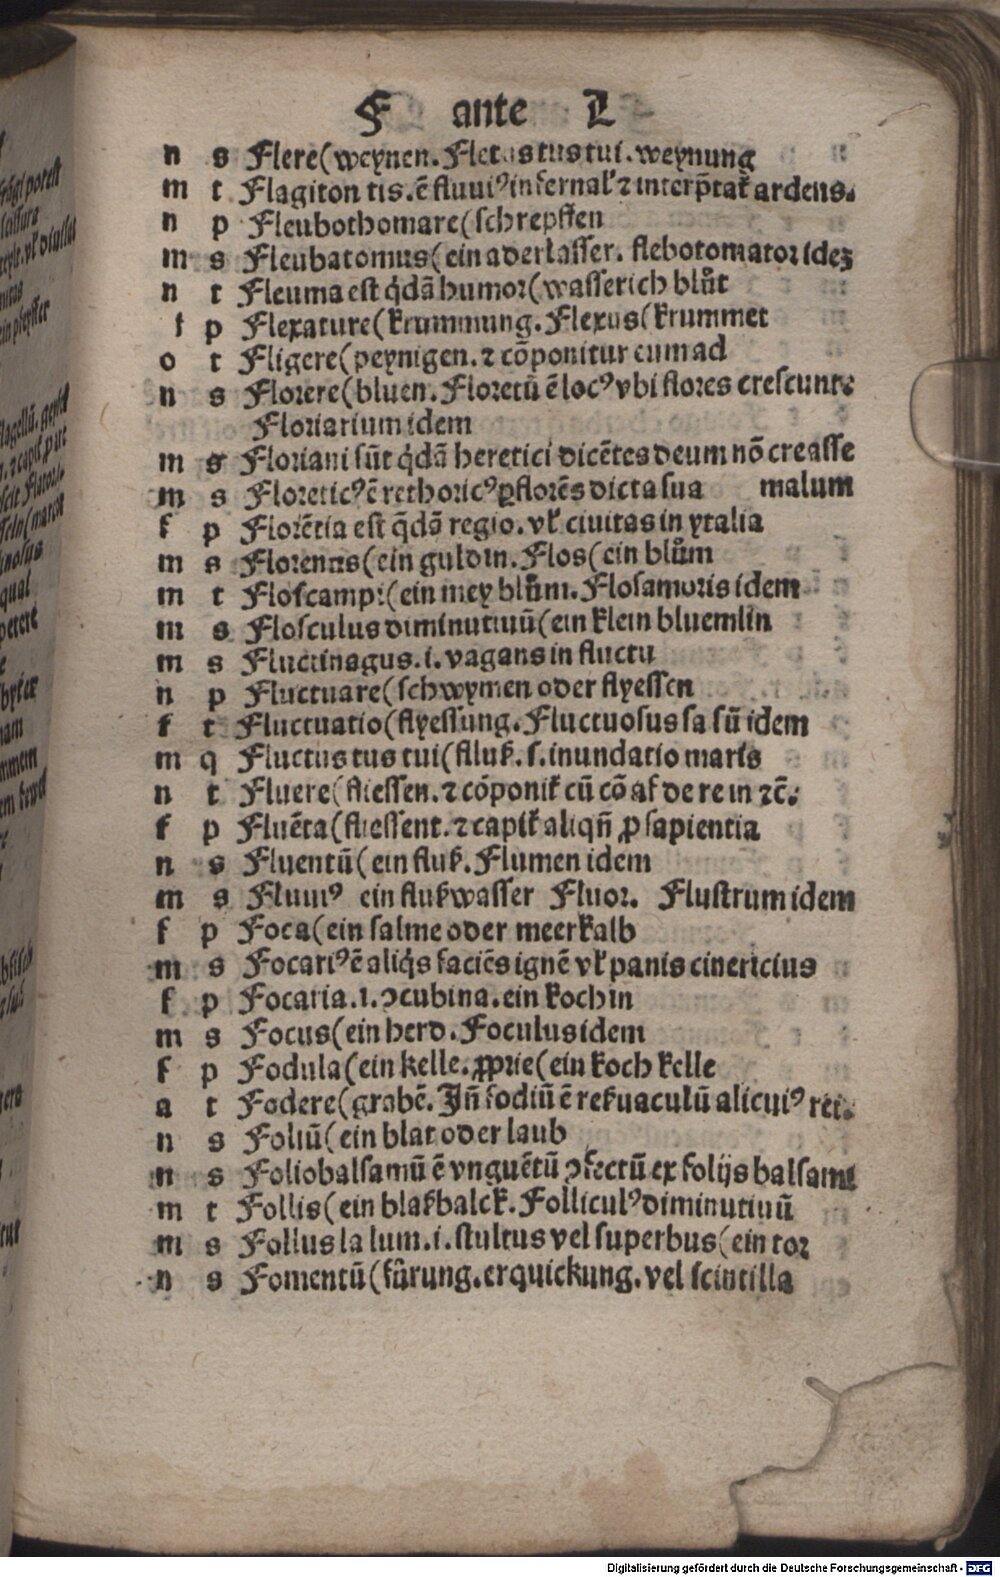 F ante L
n s Flere(weynen. Fletus tus tui. weynung
m t Flagiton tis. ē fluuiꝰ infernalꝭ ⁊ interp̄tat̉ ardens.
n p Fleubothomare(schrepffen
m s Fleubatomus(ein aderlasser. flebotomator idez
n t Fleuma est q̇dā humor(wasserich blůt
f p Flexature(krummung. Flexus(krummet
o t Fligere(peynigen. ⁊ cōponitur cum ad
n s Florere(bluen. Floretū ē locꝰ vbi flores crescunt.
Floriarium idem
m s Floriani sūt q̇dā heretici dicētes deum nō creasse
m s Floreticꝰ ē rethoricꝰ ꝑ florēs dicta sua malum
f p Florētia est q̄dā regio. vl̓ ciuitas in ytalia
m s Florenus(ein guldin. Flos(ein blům
m t Floscampi(ein mey blům. Flosamoris idem
m s Flosculus diminutiuū(ein klein bluemlin
m s Fluctinagus. i. vagans in fluctu
n p Fluctuare(schwymen oder flyessen
f t Fluctuatio(flyessung. Fluctuosus sa sū idem
m q Fluctus tus tui(flluß. s. inundatio maris
n t Fluere(fliessen. ⁊ cōponit̉ cū cō af de re in ⁊c̄.
f p Fluēta(fliessent. ⁊ capit̉ aliqn̄ ꝓ sapientia
n s Fluentū(ein fluß. Flumen idem
m s Fluuiꝰ ein flußwasser Fluor. Flustrum idem
f p Foca(ein salme oder meerkalb
m s Focariꝰ ē aliq̇s faciēs ignē vl̓ panis cinericius
f p Focaria. i. ↄcubina. ein kochin
m s Focus(ein herd. Foculus idem
f p Fodula(ein kelle. ꝓprie(ein koch kelle
a t Fodere(grabē. Jn̄ fodiū ē reßuaculū alicuiꝰ rei.
n s Foliū(ein blat oder laub
n s Foliobalsamū ē vnguētū ↄfectū ex folijs balsami
m t Follis(ein blaßbalck. Folliculꝰ diminutiuū
m s Follus la lum. i. stultus vel superbus(ein tor
n s Fomentū(fůrung. erquickung. vel scintilla
Digitalisierung gefördert durch die Deutsche Forschungsgemeinschaft - DFG